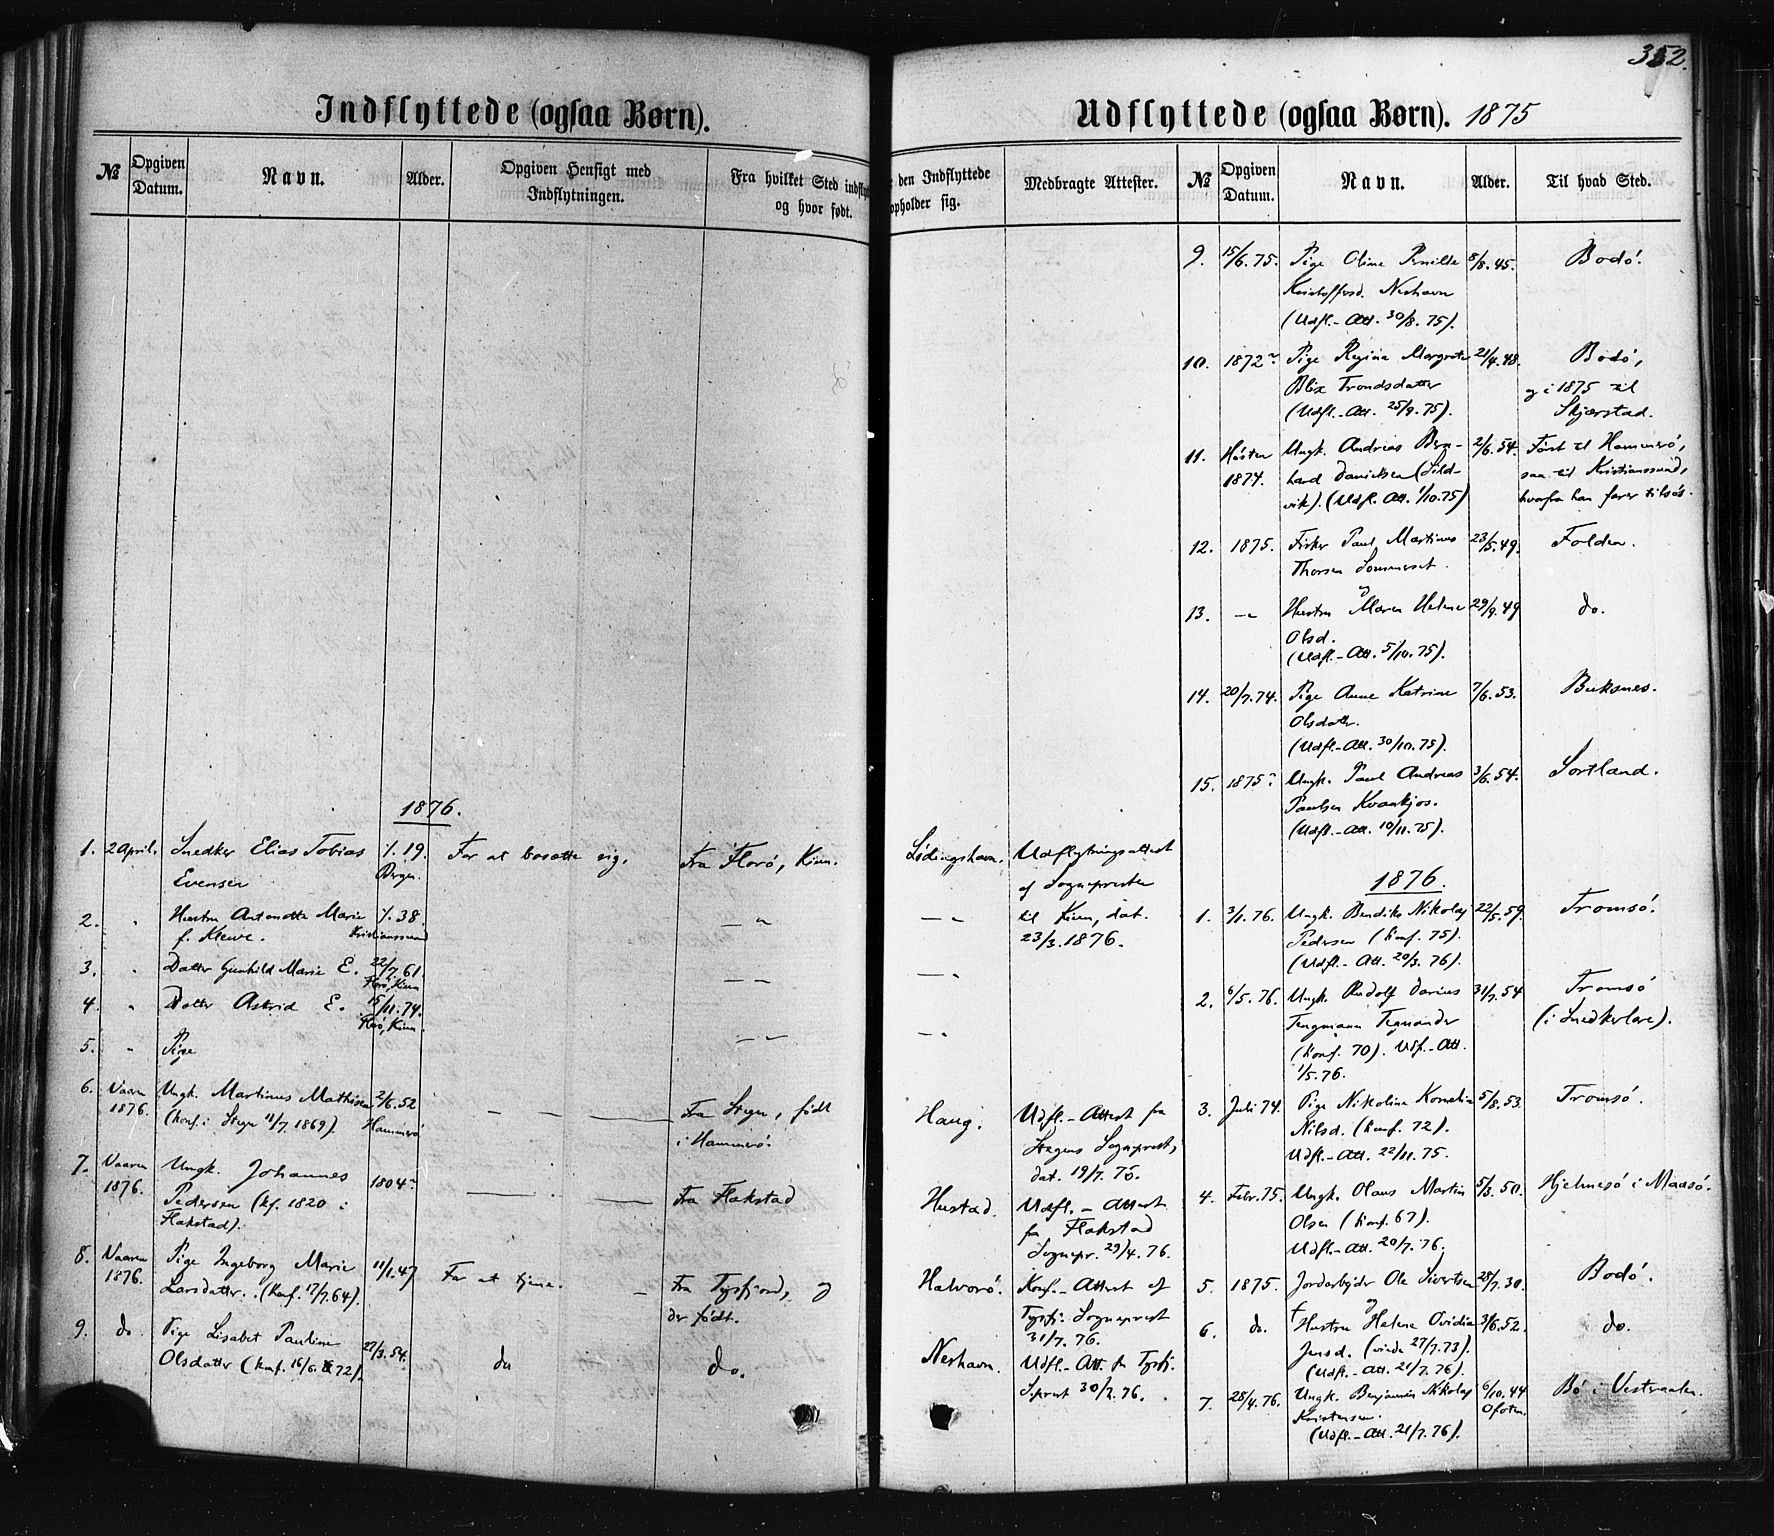 Indflyttede (ogsaa Børn).
№ Opgiven Datum. Navn. Alder. Opgiven Hensigt med Indflytningen. Fra hvilket Sted indfly og hvor født.
1876.
1. 2 April. Snedker Elias Tobias 19. For at bosætte sig. Fra Florø, Kinn.
Evensen Bergen.
2. " Hustru Antonette Marie 38. — "
f. Klewe. Kristianssund
3. " Datter Gunhild Marie E. 22/7 61. — —
Florø, Kinn
4. " Datter Astrid E. 15/11.74. — "
Florø, Kinn.
5. " Pige
6. Vaaren Ungk. Martinus Mathisen 2/6.52 — — — Fra Stegn, født
1876. (konf. i Stegn 11/7 1869). Hammerø i Hammerø.
7. Vaaren Ungk. Johannes 1804 — — Fra Flakstad
1876. Pedersen (kf. 1820 i
Flakstad).
8. Vaaren Pige Ingeborg Marie 11/1.47 For at tjene. — Fra Tysfjord, og
1876. Larsdatter. (konf. 17/7 64). der født.
9. do. Pige Lisabet Pauline 27/3.54. do do.
Olsdatter (konf. 16/6. 72).
352.
Udflyttede (ogsaa Børn). 1875
den Indflyttede opholder sig. Medbragte Attester. № Opgiven Datum. Navn. Alder. Til hvad Sted.
Lødingshavn. Udflytningsattest
af Sognepresten
— " til Kinn, dat.
23/3.1876.
— "
— "
Haug. Udfl.-Attest fra
Stegens Sogneprest,
dat. 19/7. 75.
Hustad. Udfl.-Attest
fra Flakstad
Sognepr. 29/4. 76.
Halvorø. Konf.-Attest af
Tysfj. Sogneprest
31/7. 76.
Neshavn. Udfl.-Att. fra Tysfj.
Sprest 30/7. 76.
9. 15/6.75. Pige Oline Pernille 8/8.45. Bodø.
Kristoffersd. Neshavn
(Udfl.-Att. 30/8. 75).
10. 1872 Pige Regina Margrete 21/4.48. Bodø,
Blix Trondsdatter og i 1875 til
(Udfl.-Att. 25/9. 75). Skjerstad.
11. Høsten Ungk. Andreas Bern- 2/6.54. Først til Hammerø,
1874. hard Danielsen (Sild- saa til Kristianssund,
vik). (Udfl. Att. 1/10.75) hvorfra han farer tilsøs.
12. 1875. Fisker Paul Martinus 23/5.49. Folden.
Thorsen Sommerset.
og
13. — " Hustru Maren Helene 29/9.49 do.
Olsd.
(Udfl.-Att. 5/10.75).
14. 20/7.74. Pige Anne Katrine 7/6.53. Buksnes.
Olsdatter.
(Udfl.-Att. 30/10.75).
15. 1875 Ungk. Paul Andreas 3/6.54. Sortland.
Paulsen Kvankjos.
(Udfl.-Att. 10/11.75).
1876.
1. 3/1.76. Ungk. Bendiks Nikolaj 22/5.59. Tromsø.
Pedersen (konf. 75).
(Udfl.-Att. 20/3. 76).
2. 6/5.76. Ungk. Rudolf Darius 31/7.54 Tromsø
Tengmann Tegnander (i Snedkerlære).
(konf. 70). Udf.-Att.
1/5.76.
3. Juli 74. Pige Nikoline Kornelia 5/8.53. Tromsø.
Nilsd. (konf. 72).
Udfl.-Att. 22/11.75.
4. Febr.75. Ungk. Olaus Martin 5/3.50. Hjelmesø i Maasø.
Olsen (konf. 67).
Udfl.-Att. 20/7.76.
5. 1875. Jordarbejder Ole Sivertsen 28/7.30. Bodø.
og
6. do. Hustru Helene Ovidia 3/6.52. do.
Jensd. (viede 27/7.73).
(Udfl.-Att. 21/7.76).
7. 28/4.76. Ungk. Benjamin Nikolaj 6/10.44 Bø i Vestraalen.
Kristensen. Ofoten.
(Udfl.-Att. 21/7.76).